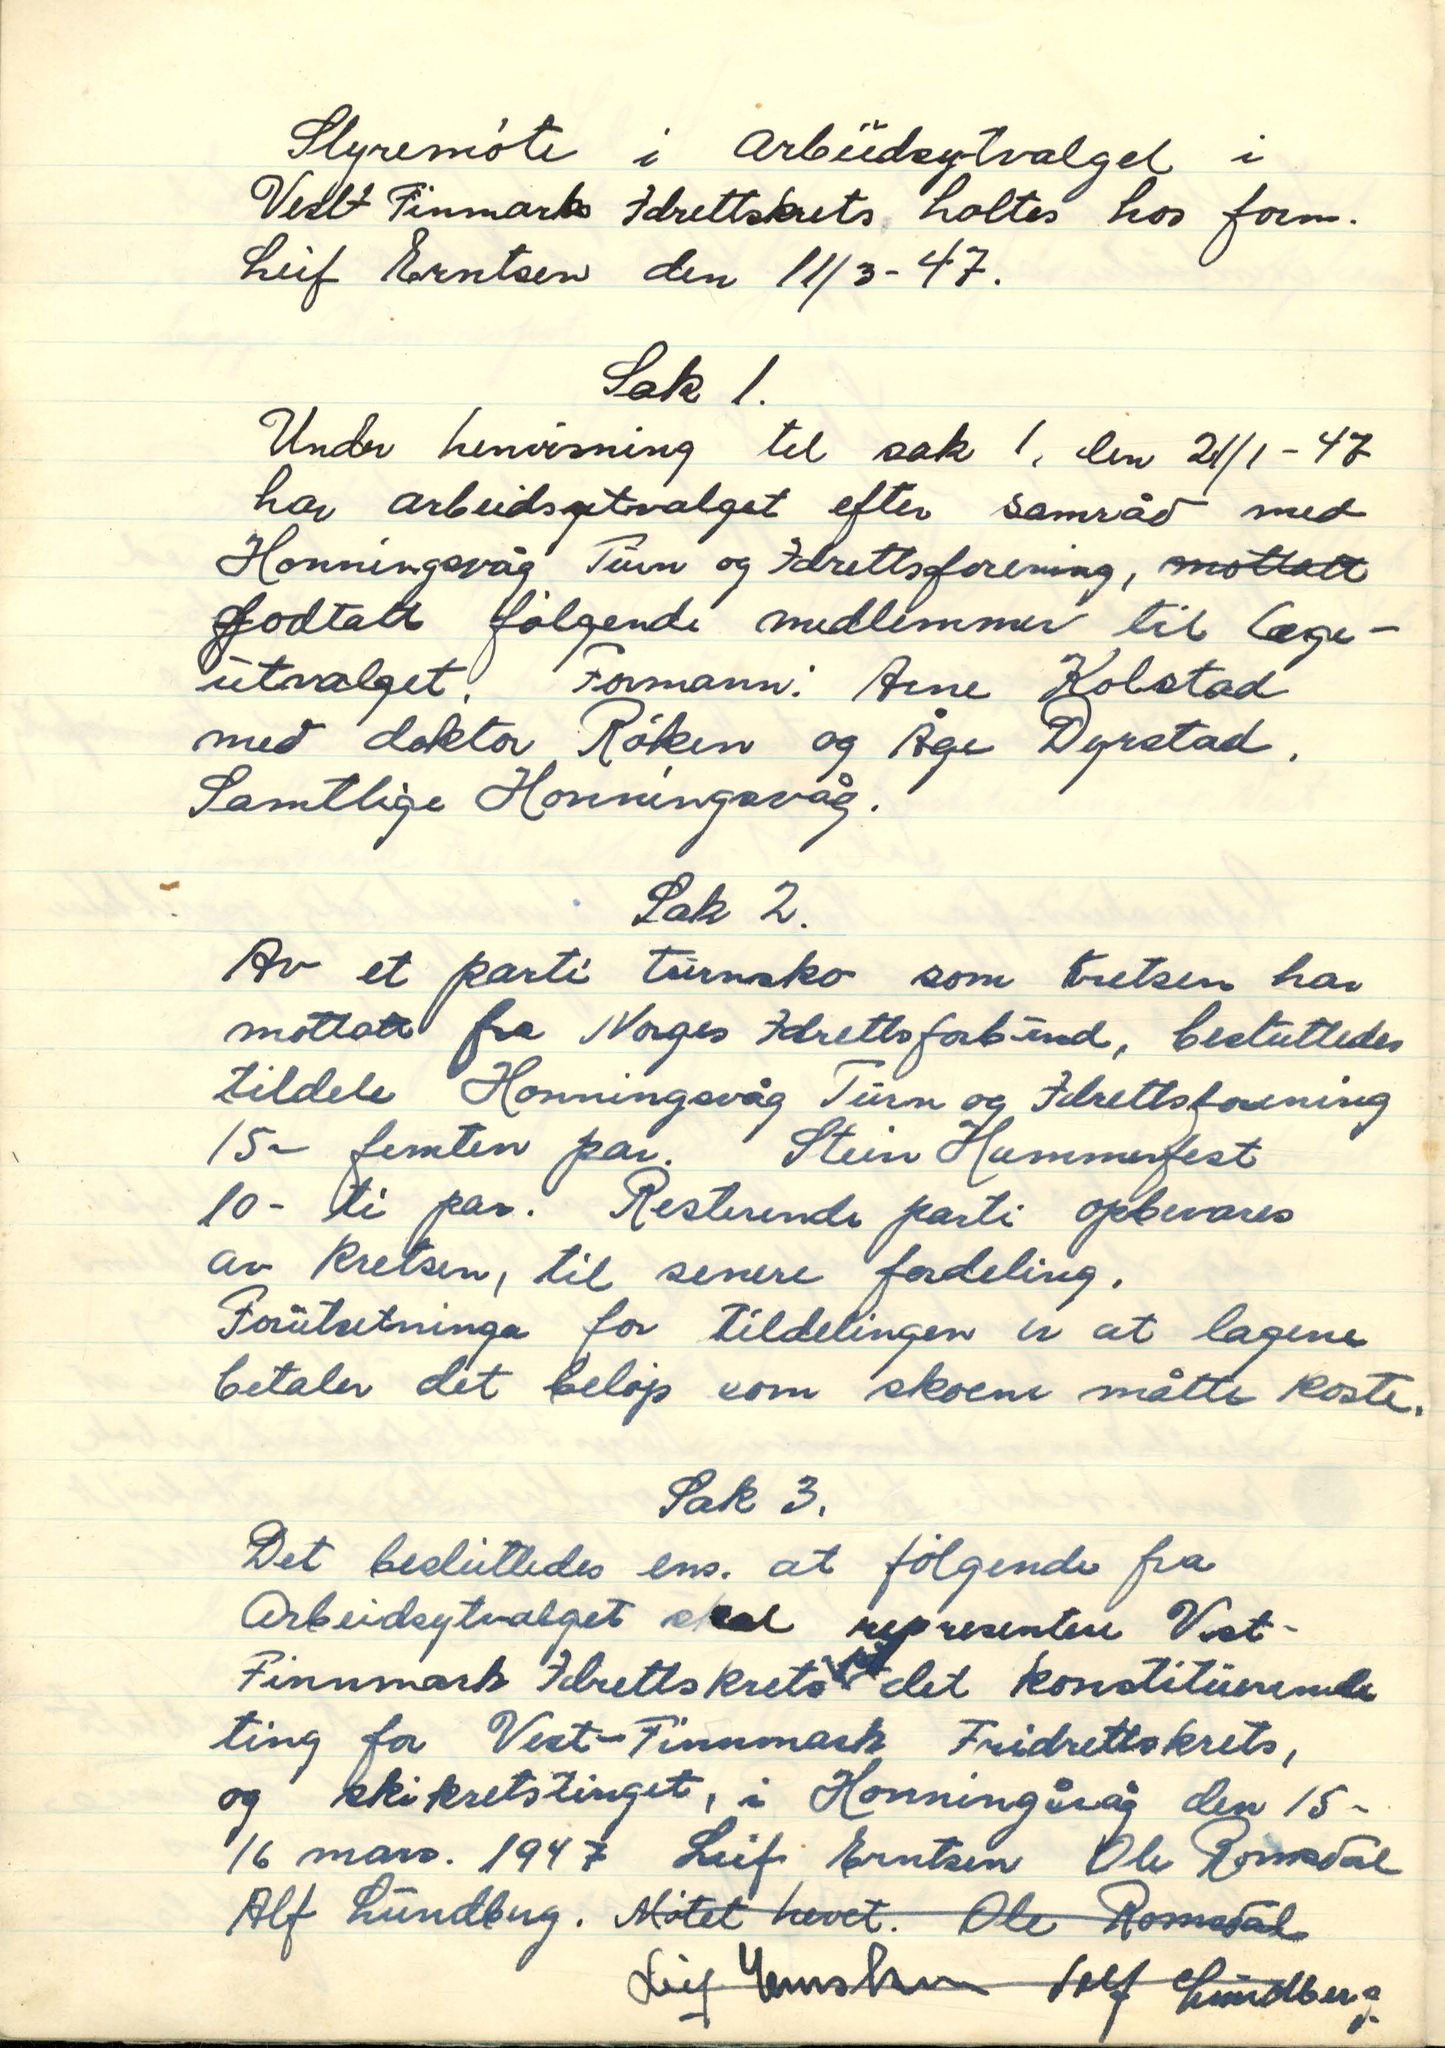 Styremöte i Arbeidsytvalget i
Vest Finmark Idrettskrets holtes hos form.
Leif Erntsen den 11/3-47.
Sak 1.
Under henvisning til sak 1, den 21/1-47
har arbeidsytvalget efter samråd med
Honningsvåg Turn og Idrettsforening, mottatt
godtatt følgende medlemmer til læge-
utvalget. Formann: Arne Kolstad
med doktor Röken og Åge Dyrstad.
Samtlige Honningsvåg.
Sak 2.
Av et parti turnsko som kretsen har
mottatt fra Norges Idrettsforbund, besluttedes
tildele Honningsvåg Turn og Idrettsforening
15- femten par. Stein Hammerfest
10- ti par. Resterende parti opbevares
av kretsen, til senere fordeling.
Forutsetninga for tildelingen er at lagene
betaler det beløp som skoene måtte koste.
Sak 3.
Det besluttedes ens. at följgende fra
Arbeidsytvalget skal representere Vest-
Finnmark Idrettskrets på det konstituerende
ting for Vest-Finnmark Fridrettskrets,
og skikretstinget, i Honningsvåg den 15-
16 mars. 1947 Leif Erntsen Ole Romsdal
Alf Lundberg. Mötet hevet. Ole Romsdal
Leif Erntsen Alf Lundberg.